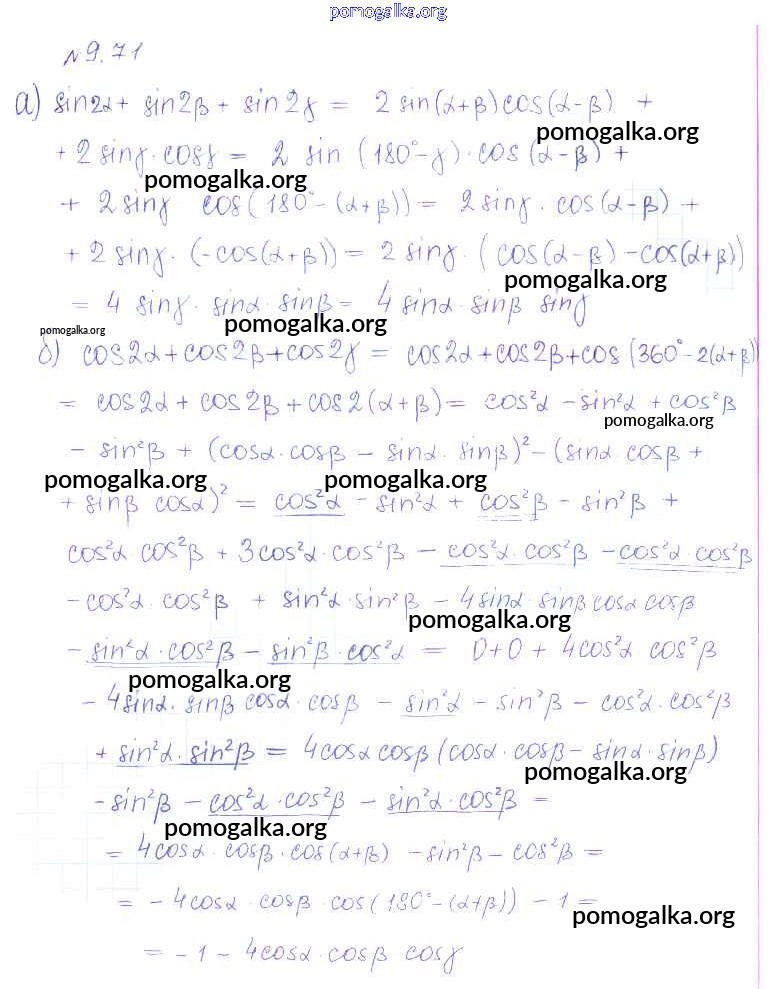 pomogalka.org
№9.71
а) sin2α + sin2β + sin2γ = 2 sin(α+β)cos(α-β) +
pomogalka.org
+ 2 sinγ·cosγ = 2 sin (180°-γ)·cos(α-β) +
pomogalka.org
+ 2 sinγ cos(180°-(α+β)) = 2 sinγ·cos(α-β) +
+ 2 sinγ·(-cos(α+β)) = 2 sinγ·(cos(α-β) -cos(α+β))
pomogalka.org
= 4 sinγ· sinα· sinβ = 4 sinα·sinβ sinγ
pomogalka.org
pomogalka.org
б) cos2α+cos2β+cos2γ = cos2α+cos2β+cos(360°-2(α+β))
= cos2α + cos2β + cos2(α+β) = cos²α -sin²α + cos²β
pomogalka.org
- sin²β + (cosα·cosβ - sinα· sinβ)² - (sinα cosβ +
pomogalka.org
pomogalka.org
+ sinβ cosα)² = cos²α - sin²α + cos²β - sin²β +
cos²α cos²β + 3cos²α·cos²β - cos²α·cos²β -cos²α·cos²β
-cos²α·cos²β + sin²α·sin²β - 4sinα·sinβ cosα cosβ
pomogalka.org
-sin²α·cos²β - sin²β·cos²α = 0+0+4cos²α cos²β
pomogalka.org
-4sinα·sinβ cosα·cosβ - sin²α - sin²β - cos²α·cos²β
+ sin²α·sin²β = 4cosα cosβ(cosα·cosβ - sinα·sinβ)
pomogalka.org
-sin²β - cos²α·cos²β - sin²α·cos²β =
pomogalka.org
= 4cosα·cosβ·cos(α+β) -sin²β - cos²β =
= -4cosα·cosβ·cos(180°-(α+β)) - 1 =
pomogalka.org
= -1 - 4cosα·cosβ cosγ